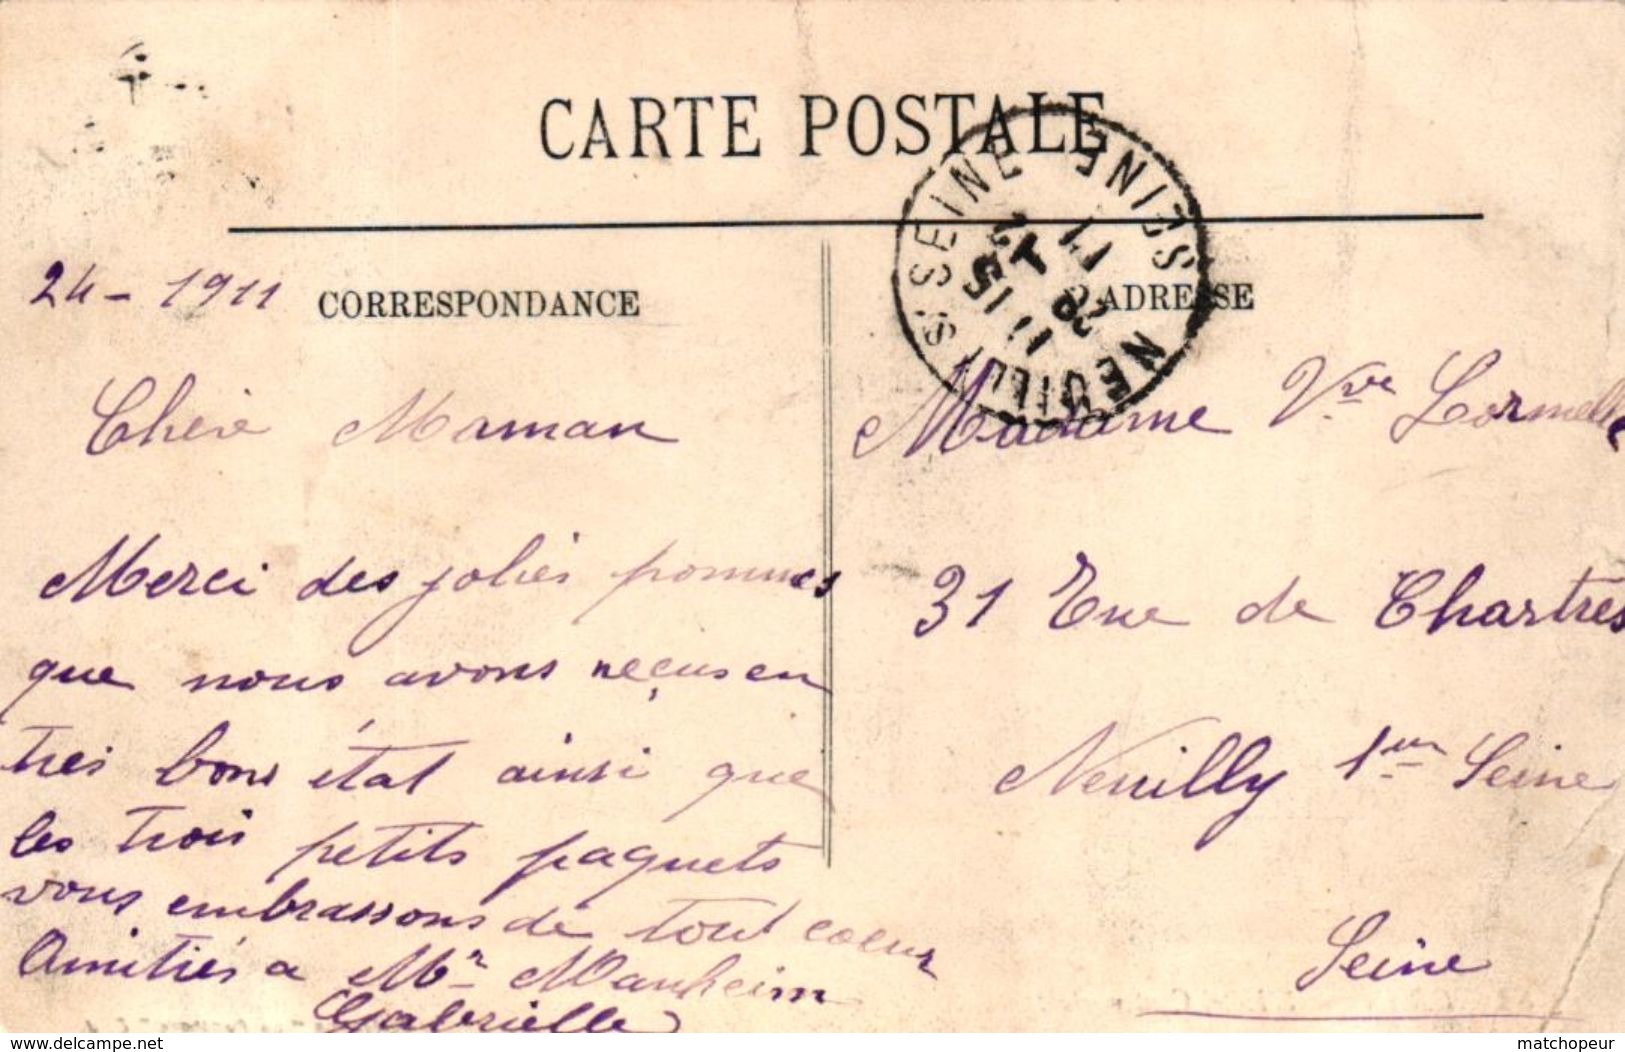 CARTE POSTALE
NEUILLY S/ SEINE SEINE
11 15
26 12
11
CORRESPONDANCE
ADRESSE
24 - 1911
Chère Maman
Merci des jolies pommes
que nous avons reçus en
tres bons état ainsi que
les trois petits paquets
vous embrassons de tout coeur
Amitiés a Mr Manheim
Gabrielle
Madame Vve Lormelle
31 Rue de Chartres
Neuilly Seine
Seine
www.delcampe.net
matchopeur